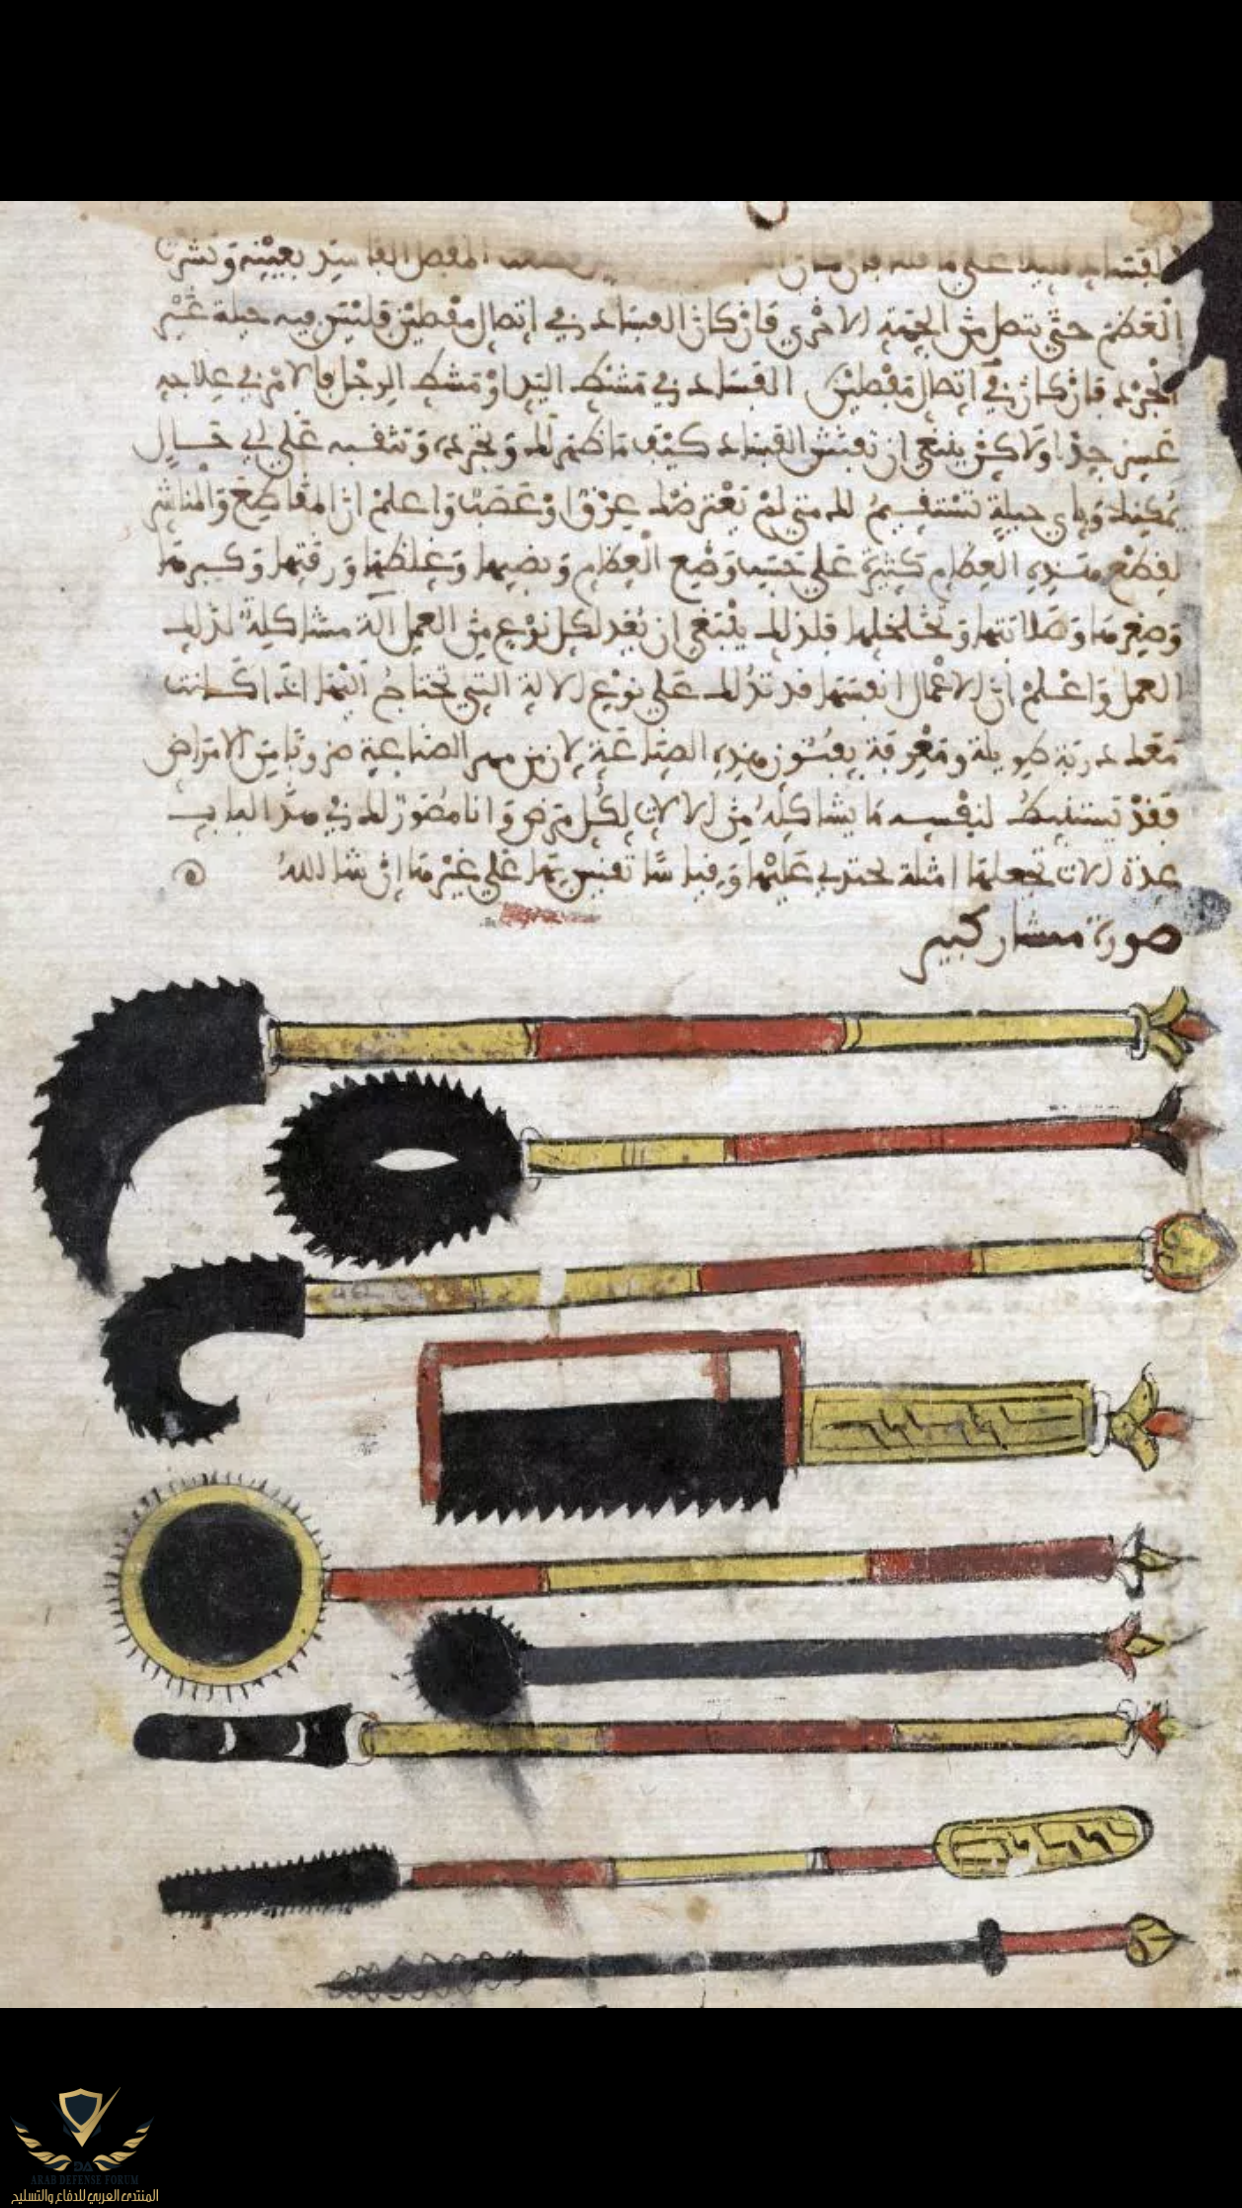 العظم حتى يتصل من الجهة الاخرى فان كان الفساد في اتصال مفصلين فليس فيه حيلة غير
فان كان في اتصال مفصلين الفساد في مشط اليد او مشط الرجل فالامر في علاجه
عسير جدا ولاكن ينبغي ان تفتش الفساد كيف ما ظهر لك وتجرده وتنقيه على اي حال
يمكنك وباي حيلة تستقيم لك متى لم يعترضك عرق او عصب واعلم ان المقاطع والمناشر
لقطع هذه العظام كثيرة على حسب وضع العظام ونصبها وغلظها ورقتها وكبرها
وصغرها وصلابتها وتخلخلها فلذلك ينبغي ان تعد لكل نوع من العمل آلة مشاكلة لذلك
العمل واعلم ان الاعمال انفسها قد تدلك على نوع الالة التي تحتاج اليها اذا كانت
معك دربة طويلة ومعرفة بفنون هذه الصناعة لان من مهر الصناعة ضروبا من الامراض
فقد يستنبط لنفسه ما يشاكله من الالات لكل مرض وانا مصور لك في هذا الباب
عدة الات تجعلها امثلة تحتذي عليها تقيس بها على غيرها ان شا الله
صورة منشار كبير
ARAB DEFENSE FORUM
المنتدى العربي للدفاع والتسليح